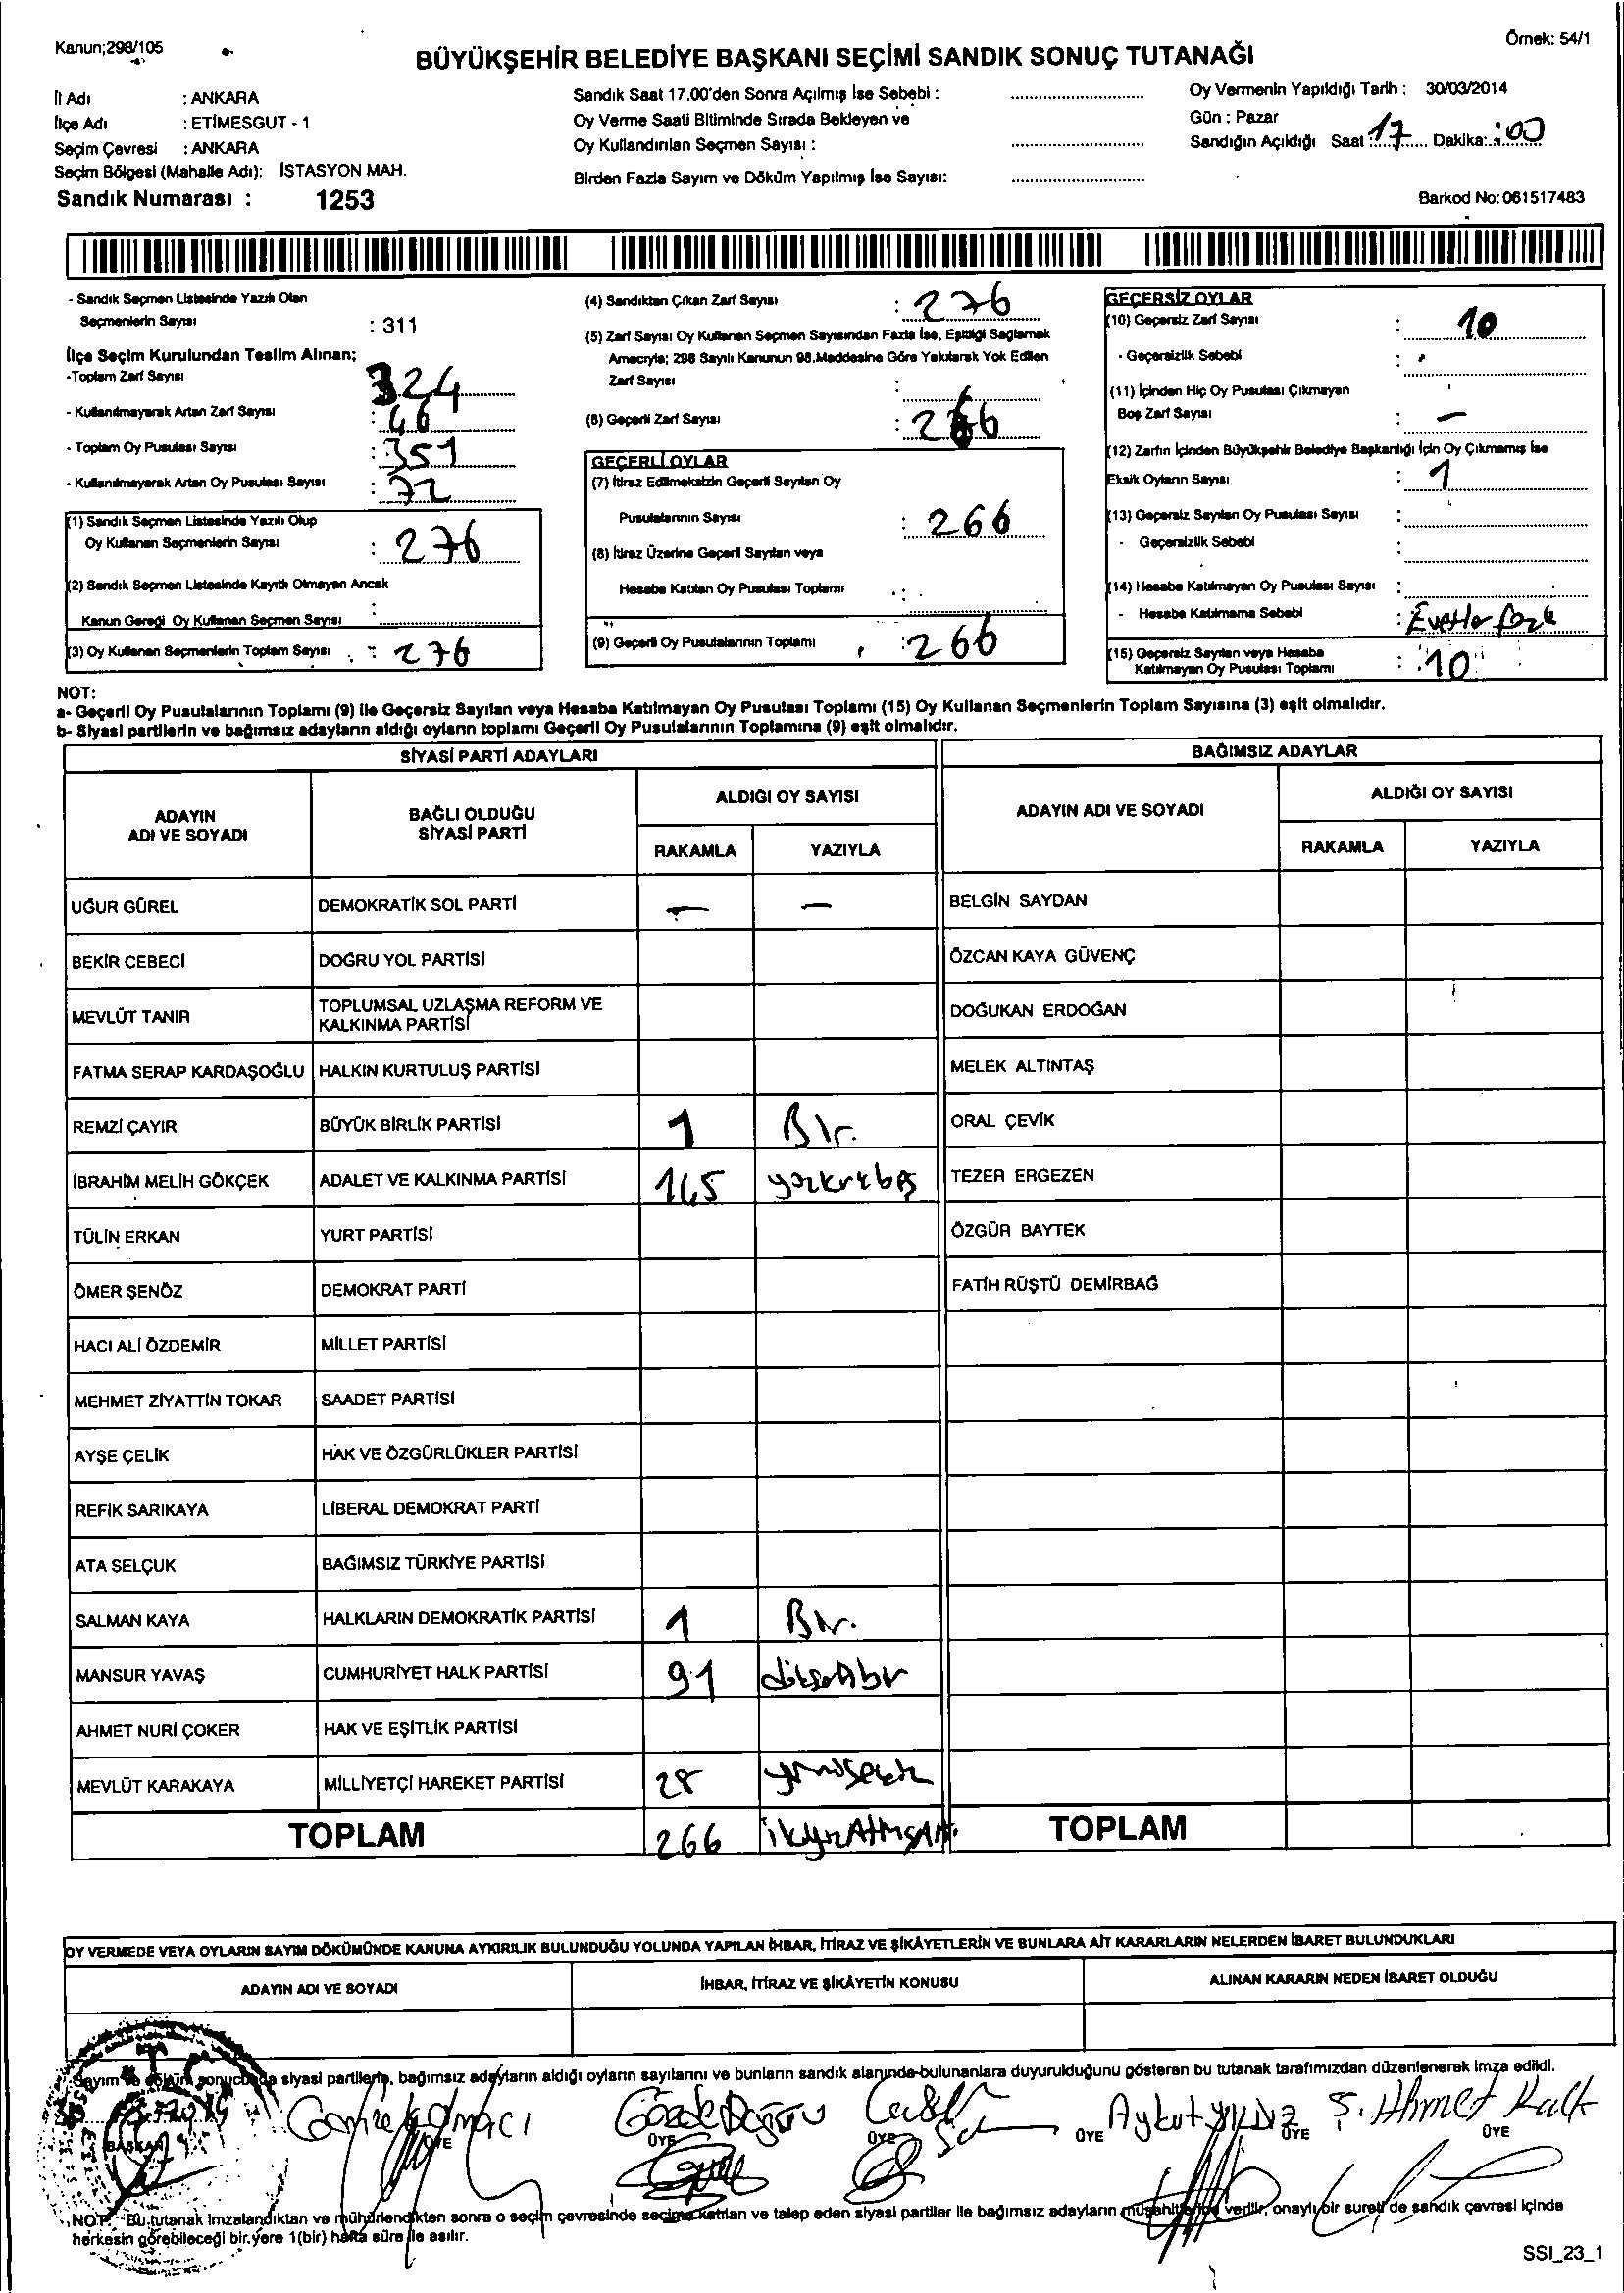 Kanun;298/105
Örnek: 54/1
BÜYÜKŞEHİR BELEDİYE BAŞKANI SEÇİMİ SANDIK SONUÇ TUTANAĞI
İl Adı : ANKARA
İlçe Adı : ETİMESGUT - 1
Seçim Çevresi : ANKARA
Seçim Bölgesi (Mahalle Adı): İSTASYON MAH.
Sandık Numarası : 1253
Sandık Saat 17.00'den Sonra Açılmış İse Sebebi :
Oy Verme Saati Bitiminde Sırada Bekleyen ve
Oy Kullandırılan Seçmen Sayısı :
Birden Fazla Sayım ve Döküm Yapılmış İse Sayısı:
Oy Vermenin Yapıldığı Tarih : 30/03/2014
Gün : Pazar
Sandığın Açıldığı Saat 17 Dakika: 00
Barkod No:061517483
- Sandık Seçmen Listesinde Yazılı Olan
Seçmenlerin Sayısı : 311
İlçe Seçim Kurulundan Teslim Alınan;
-Toplam Zarf Sayısı 324
- Kullanılmayarak Artan Zarf Sayısı : 46
- Toplam Oy Pusulası Sayısı : 351
- Kullanılmayarak Artan Oy Pusulası Sayısı : 72
(1) Sandık Seçmen Listesinde Yazılı Olup
Oy Kullanan Seçmenlerin Sayısı : 276
(2) Sandık Seçmen Listesinde Kayıtlı Olmayan Ancak
Kanun Gereği Oy Kullanan Seçmen Sayısı :
(3) Oy Kullanan Seçmenlerin Toplam Sayısı : 276
(4) Sandıktan Çıkan Zarf Sayısı : 276
(5) Zarf Sayısı Oy Kullanan Seçmen Sayısından Fazla İse, Eşitliği Sağlamak
Amacıyla; 298 Sayılı Kanunun 98.Maddesine Göre Yakılarak Yok Edilen
Zarf Sayısı :
(6) Geçerli Zarf Sayısı : 266
GEÇERLİ OYLAR
(7) İtiraz Edilmeksizin Geçerli Sayılan Oy
Pusulalarının Sayısı : 266
(8) İtiraz Üzerine Geçerli Sayılan veya
Hesaba Katılan Oy Pusulası Toplamı :
(9) Geçerli Oy Pusulalarının Toplamı : 266
GEÇERSİZ OYLAR
(10) Geçersiz Zarf Sayısı : 10
- Geçersizlik Sebebi :
(11) İçinden Hiç Oy Pusulası Çıkmayan
Boş Zarf Sayısı : —
(12) Zarfın İçinden Büyükşehir Belediye Başkanlığı İçin Oy Çıkmamış İse
Eksik Oyların Sayısı : 1
(13) Geçersiz Sayılan Oy Pusulası Sayısı :
- Geçersizlik Sebebi :
(14) Hesaba Katılmayan Oy Pusulası Sayısı :
- Hesaba Katılmama Sebebi :
(15) Geçersiz Sayılan veya Hesaba
Katılmayan Oy Pusulası Toplamı : 10
NOT:
a- Geçerli Oy Pusulalarının Toplamı (9) ile Geçersiz Sayılan veya Hesaba Katılmayan Oy Pusulası Toplamı (15) Oy Kullanan Seçmenlerin Toplam Sayısına (3) eşit olmalıdır.
b- Siyasi partilerin ve bağımsız adayların aldığı oyların toplamı Geçerli Oy Pusulalarının Toplamına (9) eşit olmalıdır.
SİYASİ PARTİ ADAYLARI BAĞIMSIZ ADAYLAR
ADAYIN ADI VE SOYADI BAĞLI OLDUĞU SİYASİ PARTİ ALDIĞI OY SAYISI ADAYIN ADI VE SOYADI ALDIĞI OY SAYISI
RAKAMLA YAZIYLA RAKAMLA YAZIYLA
UĞUR GÜREL DEMOKRATİK SOL PARTİ — — BELGİN SAYDAN
BEKİR CEBECİ DOĞRU YOL PARTİSİ ÖZCAN KAYA GÜVENÇ
MEVLÜT TANIR TOPLUMSAL UZLAŞMA REFORM VE KALKINMA PARTİSİ DOĞUKAN ERDOĞAN
FATMA SERAP KARDAŞOĞLU HALKIN KURTULUŞ PARTİSİ MELEK ALTINTAŞ
REMZİ ÇAYIR BÜYÜK BİRLİK PARTİSİ 1 Bir. ORAL ÇEVİK
İBRAHİM MELİH GÖKÇEK ADALET VE KALKINMA PARTİSİ 145 yüzkırkbeş TEZER ERGEZEN
TÜLİN ERKAN YURT PARTİSİ ÖZGÜR BAYTEK
ÖMER ŞENÖZ DEMOKRAT PARTİ FATİH RÜŞTÜ DEMİRBAĞ
HACI ALİ ÖZDEMİR MİLLET PARTİSİ
MEHMET ZİYATTİN TOKAR SAADET PARTİSİ
AYŞE ÇELİK HAK VE ÖZGÜRLÜKLER PARTİSİ
REFİK SARIKAYA LİBERAL DEMOKRAT PARTİ
ATA SELÇUK BAĞIMSIZ TÜRKİYE PARTİSİ
SALMAN KAYA HALKLARIN DEMOKRATİK PARTİSİ 1 Bir.
MANSUR YAVAŞ CUMHURİYET HALK PARTİSİ 91 doksanbir
AHMET NURİ ÇOKER HAK VE EŞİTLİK PARTİSİ
MEVLÜT KARAKAYA MİLLİYETÇİ HAREKET PARTİSİ 28 yirmisekiz
TOPLAM 266 ikiyüzAltmışAltı TOPLAM
OY VERMEDE VEYA OYLARIN SAYIM DÖKÜMÜNDE KANUNA AYKIRILIK BULUNDUĞU YOLUNDA YAPILAN İHBAR, İTİRAZ VE ŞİKÂYETLERİN VE BUNLARA AİT KARARLARIN NELERDEN İBARET BULUNDUKLARI
ADAYIN ADI VE SOYADI İHBAR, İTİRAZ VE ŞİKÂYETİN KONUSU ALINAN KARARIN NEDEN İBARET OLDUĞU
Sayım ve döküm sonucunda siyasi partilerle, bağımsız adayların aldığı oyların sayılarını ve bunların sandık alanında bulunanlara duyurulduğunu gösteren bu tutanak tarafımızdan düzenlenerek imza edildi.
Gözde Doğru Aykut YILDIZ Ş. Ahmet
BAŞKAN ÜYE ÜYE ÜYE ÜYE ÜYE ÜYE
NOT: Bu tutanak imzalandıktan ve mühürlendikten sonra o seçim çevresinde seçime katılan ve talep eden siyasi partiler ile bağımsız adayların müşahitlerine verilir, onaylı bir sureti de sandık çevresi içinde
herkesin görebileceği bir yere 1(bir) hafta süre ile asılır.
SSI_23_1